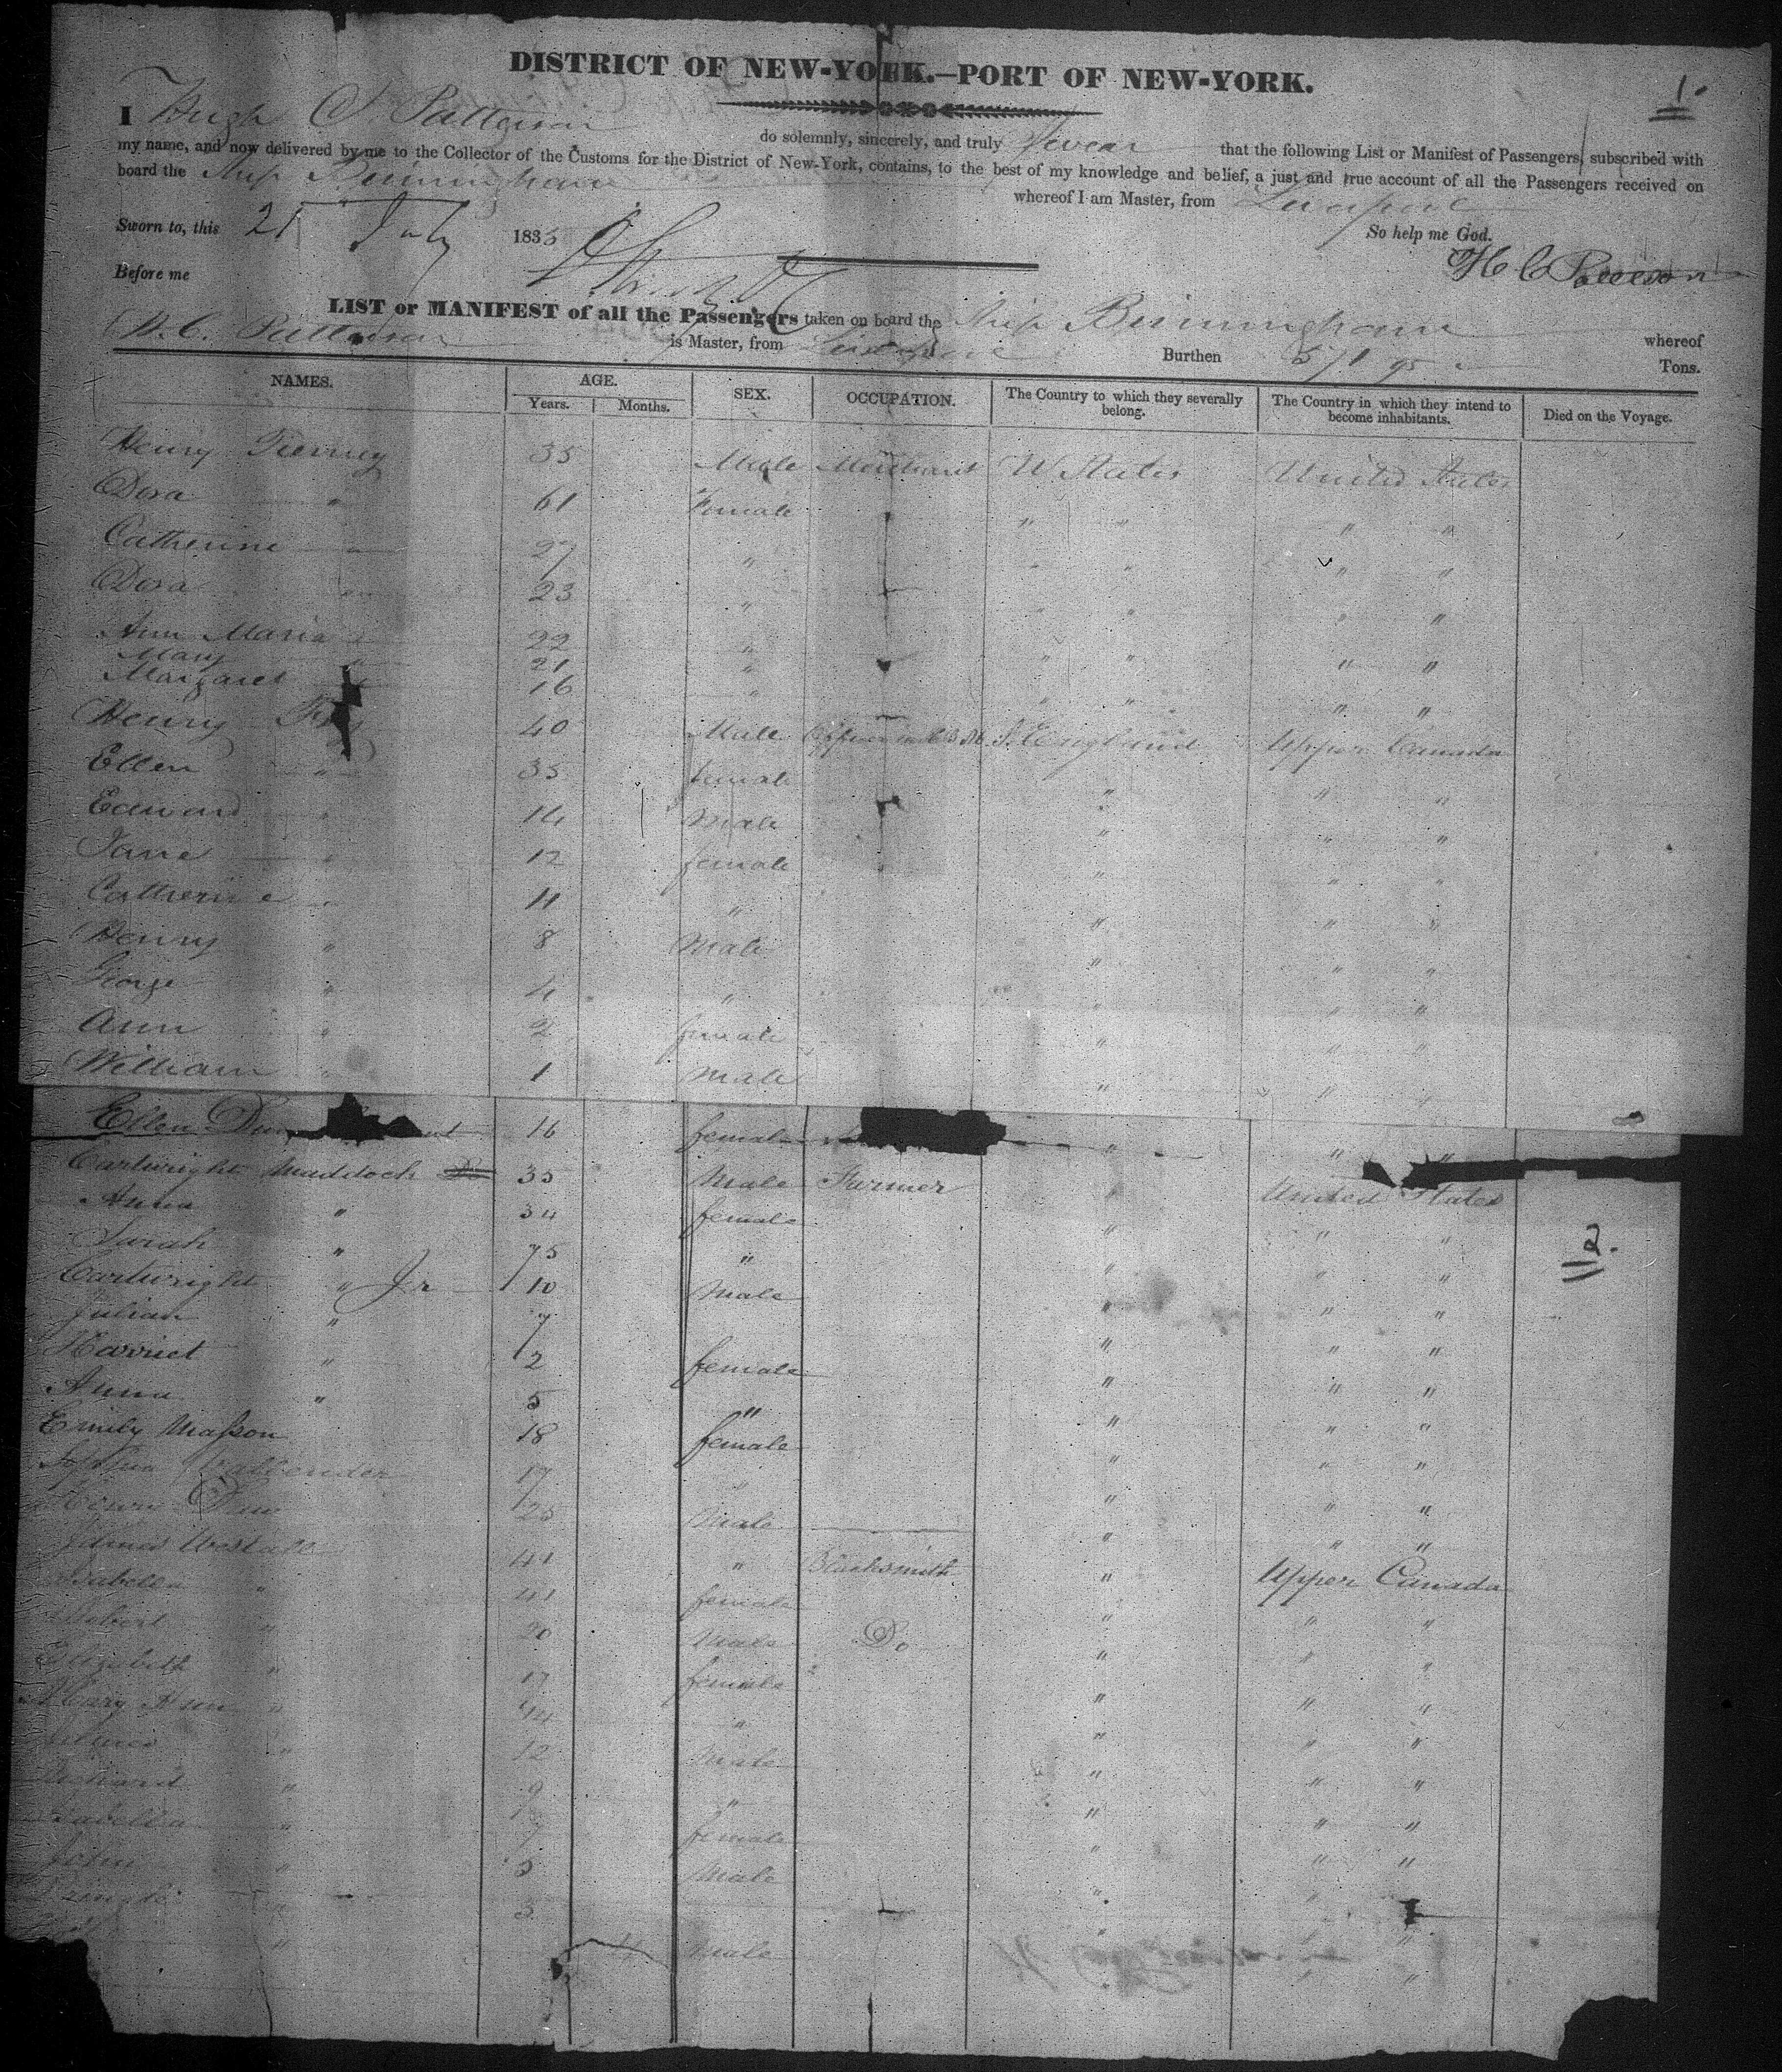 DISTRICT OF NEW-YORK.—PORT OF NEW-YORK.
1.
I Hugh C. Patterson do solemnly, sincerely, and truly Swear that the following List or Manifest of Passengers, subscribed with
my name, and now delivered by me to the Collector of the Customs for the District of New-York, contains, to the best of my knowledge and belief, a just and true account of all the Passengers received on
board the Ship Birmingham whereof I am Master, from Liverpool
Sworn to, this 21 July 1835 So help me God.
Before me H C Patterson
LIST or MANIFEST of all the Passengers taken on board the Ship Birmingham whereof
H. C. Patterson is Master, from Liverpool Burthen 571 95 Tons.
NAMES. AGE. SEX. OCCUPATION. The Country to which they severally belong. The Country in which they intend to become inhabitants. Died on the Voyage.
Years. Months.
Henry Tierney 35 Male Merchant U States United States
Dora " 61 Female " " " "
Catherine " 27 " " " " "
Dora " 23 " " " " "
Ann Maria " 22 " " " " "
Mary " 21 "
Margaret " 16 " " " " "
Henry 40 Male England Upper Canada
Ellen " 35 female " " "
Edward " 14 Male " " "
Jane " 12 female " " "
Catherine " 11 " " " "
Henry " 8 Male " " "
George " 4 " " " "
Ann " 2 female " " "
William " 1 Male " " "
Ellen 16 female " " "
Cartwright Maddock 35 Male Farmer " United States
Anna " 34 female " " "
2.
Sarah " 75 " " " "
Cartwright " Jr 10 Male " " "
Julian " 7 " " "
Harriet " 2 female " " "
Anna " 5 " " " "
Emily Masson 18 female " " "
Callender 17 " " " "
25 Male " " "
James Westall 41 " Blacksmith " Upper Canada
Isabella " 41 female " " "
Robert " 20 Male Do " " "
Elizabeth " 17 female " " "
Mary Ann " 14 " " " "
" 12 Male " " "
Richard " 9 " " " "
Isabella " 7 female " " "
John " 5 Male " "
" 3 " "
" Male " "